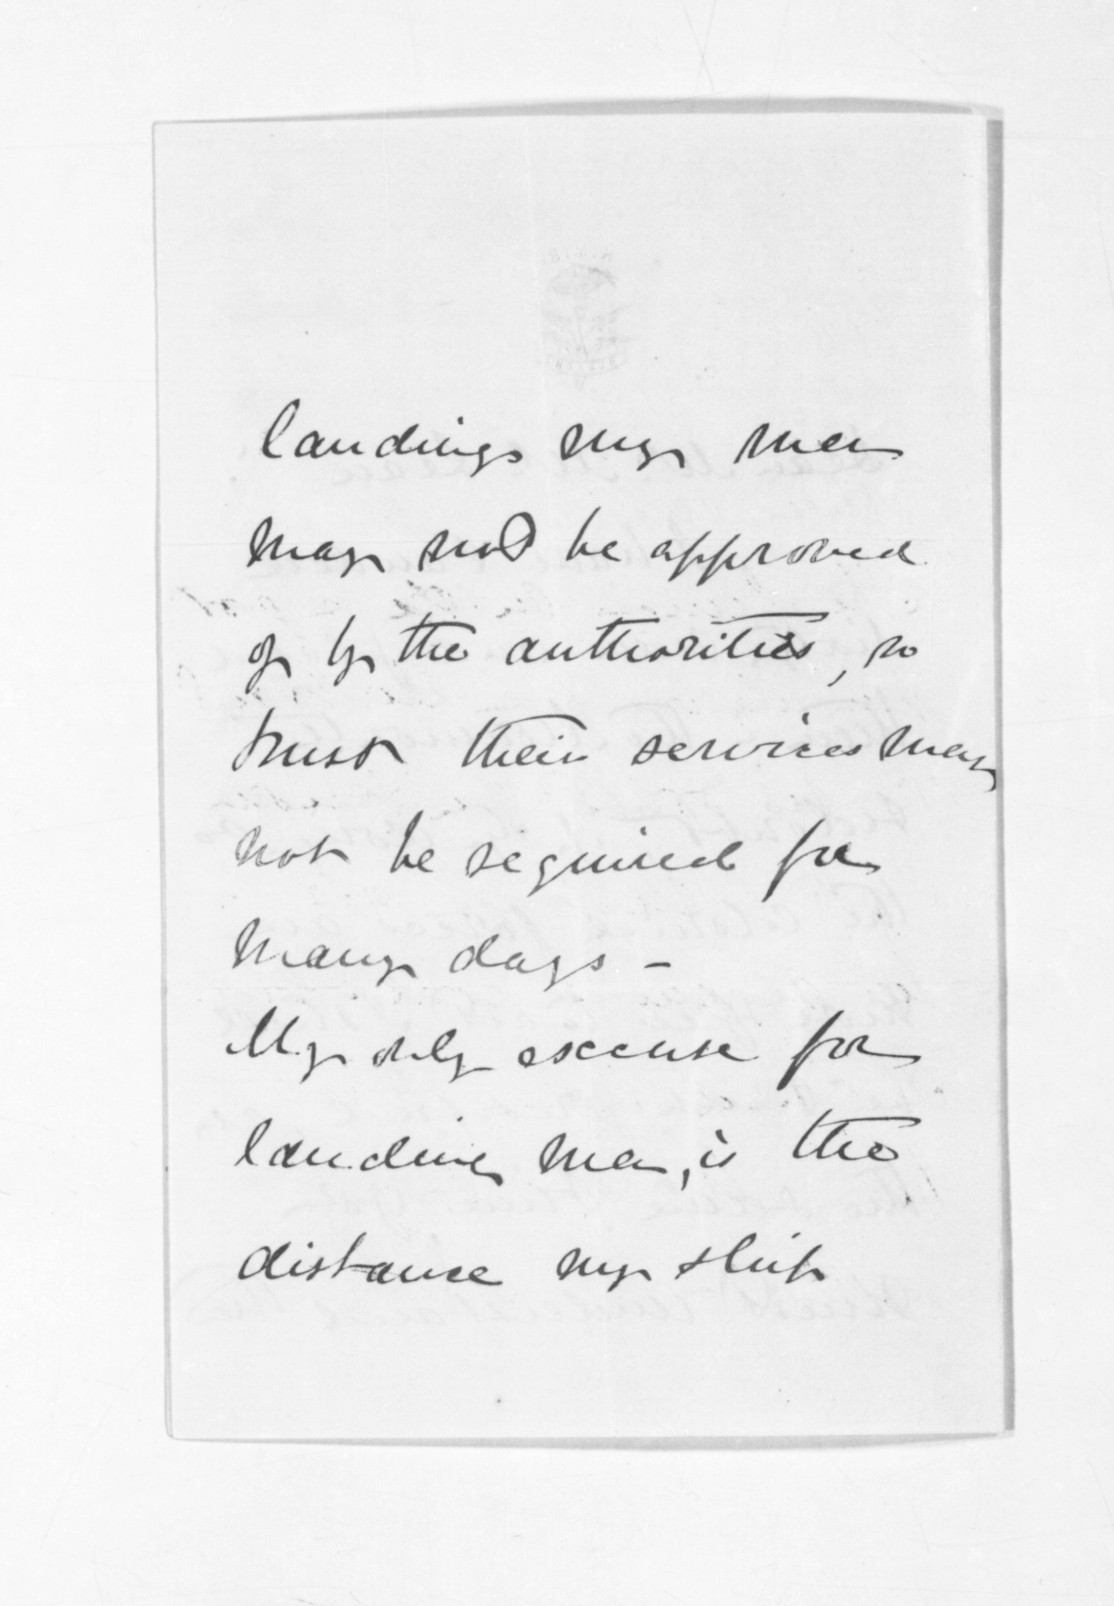 landing my men
may not be approved
of by the authorities, so
trust their services may
not be required for
many days -
My only excuse for
landing men, is the
distance my ship